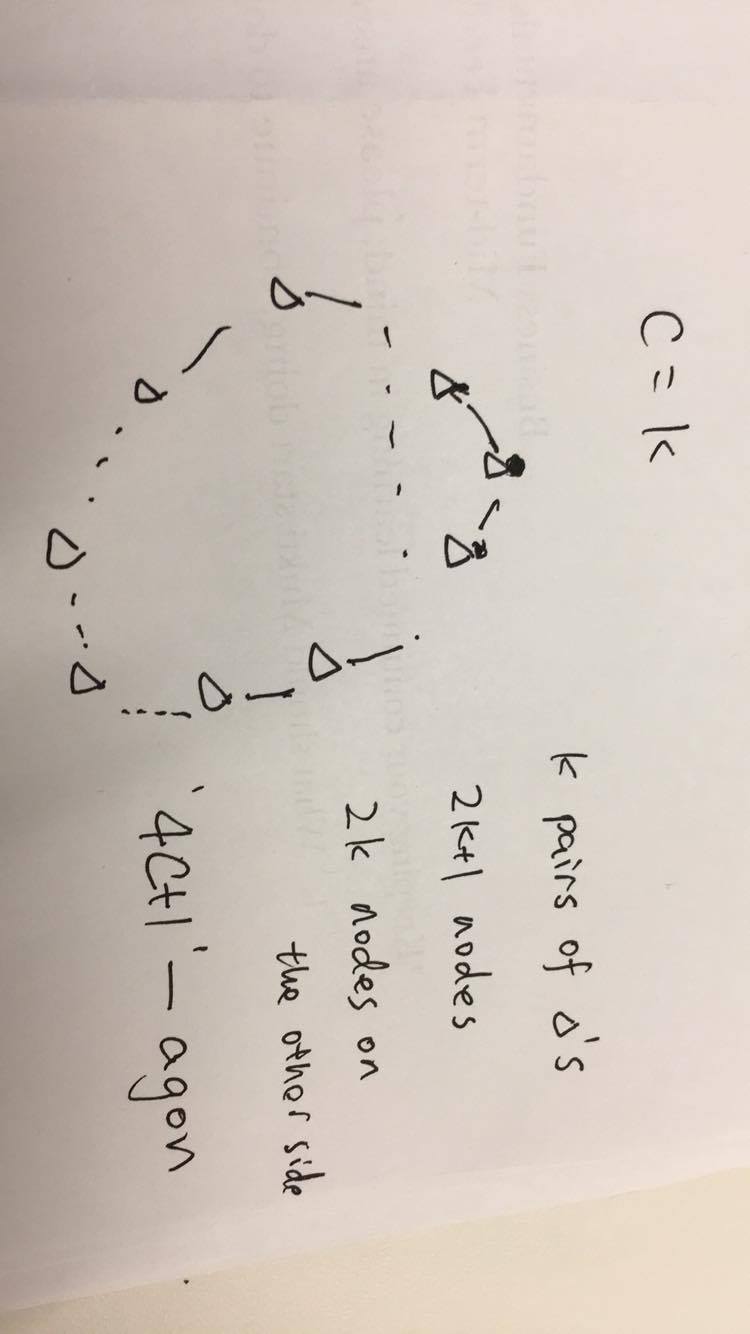 C = k
k pairs of Δ's
2k+1 nodes
2k nodes on
the other side
'4C+1' - agon